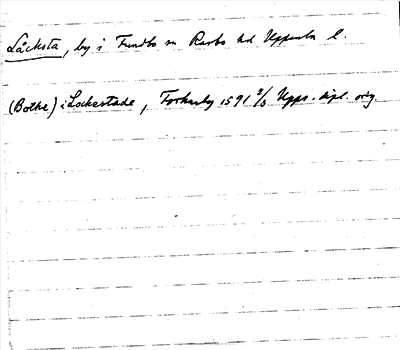 Låcksta, by i Funbo sn Rasbo hd Uppsala l.
(Bothe) i Lockestade, Torkarby 1591 2/5 Upps. dipl. orig